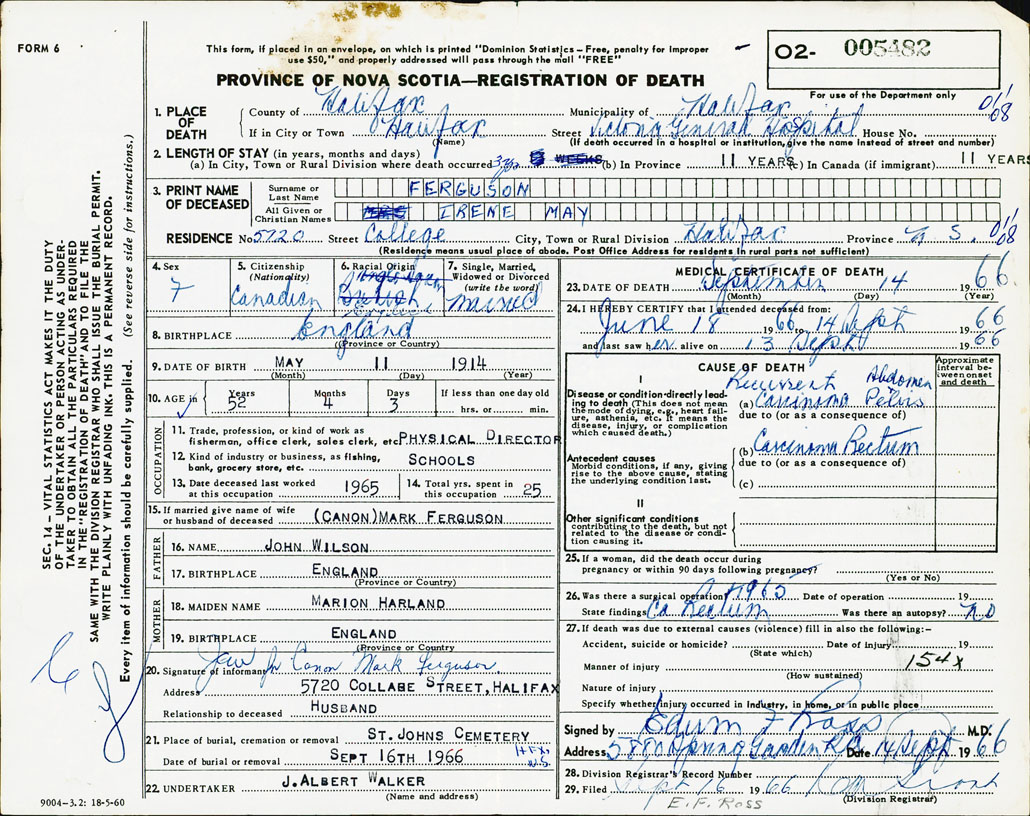 FORM 6
This form, if placed in an envelope, on which is printed "Dominion Statistics – Free, penalty for improper
use $50," and properly addressed will pass through the mail "FREE"
PROVINCE OF NOVA SCOTIA—REGISTRATION OF DEATH
02- 005482
For use of the Department only
SEC. 14 – VITAL STATISTICS ACT MAKES IT THE DUTY
OF THE UNDERTAKER OR PERSON ACTING AS UNDER-
TAKER TO OBTAIN ALL THE PARTICULARS REQUIRED
IN THE "REGISTRATION OF DEATH" AND TO FILE THE
SAME WITH THE DIVISION REGISTRAR WHO SHALL ISSUE THE BURIAL PERMIT.
WRITE PLAINLY WITH UNFADING INK. THIS IS A PERMANENT RECORD.
Every item of information should be carefully supplied. (See reverse side for instructions.)
1. PLACE OF DEATH
County of Halifax Municipality of Halifax
If in City or Town Halifax Street Victoria General Hospital House No.
(Name) (If death occurred in a hospital or institution, give the name instead of street and number)
2. LENGTH OF STAY (in years, months and days)
(a) In City, Town or Rural Division where death occurred (b) In Province 11 YEARS (c) In Canada (if immigrant) 11 YEARS
3. PRINT NAME OF DECEASED
Surname or Last Name FERGUSON
All Given or Christian Names IRENE MAY
RESIDENCE No. 5720 Street College City, Town or Rural Division Halifax Province N. S.
(Residence means usual place of abode. Post Office Address for residents in rural parts not sufficient)
4. Sex F
5. Citizenship (Nationality) Canadian
6. Racial Origin
7. Single, Married, Widowed or Divorced (write the word) married
8. BIRTHPLACE England
(Province or Country)
9. DATE OF BIRTH MAY 11 1914
(Month) (Day) (Year)
10. AGE in Years 52 Months 4 Days 3 If less than one day old hrs. or min.
OCCUPATION
11. Trade, profession, or kind of work as
fisherman, office clerk, sales clerk, etc. PHYSICAL DIRECTOR
12. Kind of industry or business, as fishing,
bank, grocery store, etc. SCHOOLS
13. Date deceased last worked at this occupation 1965
14. Total yrs. spent in this occupation 25
15. If married give name of wife
or husband of deceased (CANON) MARK FERGUSON
FATHER
16. NAME JOHN WILSON
17. BIRTHPLACE ENGLAND
(Province or Country)
MOTHER
18. MAIDEN NAME MARION HARLAND
19. BIRTHPLACE ENGLAND
(Province or Country)
20. Signature of informant Canon Mark Ferguson
Address 5720 COLLAGE STREET, HALIFAX
Relationship to deceased HUSBAND
21. Place of burial, cremation or removal ST. JOHNS CEMETERY
Date of burial or removal SEPT 16TH 1966 HFX, N.S.
22. UNDERTAKER J. ALBERT WALKER
(Name and address)
9004–3.2: 18-5-60
MEDICAL CERTIFICATE OF DEATH
23. DATE OF DEATH September 14 1966
(Month) (Day) (Year)
24. I HEREBY CERTIFY that I attended deceased from:
June 18 1966 to 14 Sept 1966
and last saw her alive on 13 Sept 1966
CAUSE OF DEATH
Approximate interval between onset and death
I
Disease or condition directly leading to death (This does not mean the mode of dying, e.g., heart failure, asthenia, etc. It means the disease, injury, or complication which caused death.)
Recurrent Abdomen
(a) Carcinoma Pelvis
due to (or as a consequence of)
Antecedent causes
Morbid conditions, if any, giving rise to the above cause, stating the underlying condition last.
(b) Carcinoma Rectum
due to (or as a consequence of)
(c)
II
Other significant conditions
contributing to the death, but not related to the disease or condition causing it.
25. If a woman, did the death occur during
pregnancy or within 90 days following pregnancy?
(Yes or No)
26. Was there a surgical operation? 1965 Date of operation 19
State findings Ca Rectum Was there an autopsy? NO
27. If death was due to external causes (violence) fill in also the following:–
Accident, suicide or homicide? Date of injury 19
(State which)
Manner of injury 154X
(How sustained)
Nature of injury
Specify whether injury occurred in Industry, in home, or in public place
Signed by Edwin F Ross M.D.
Address 5880 Spring Garden Rd Date 14 Sept 1966
28. Division Registrar's Record Number
29. Filed Sept 16 1966
(Division Registrar)
E. F. ROSS